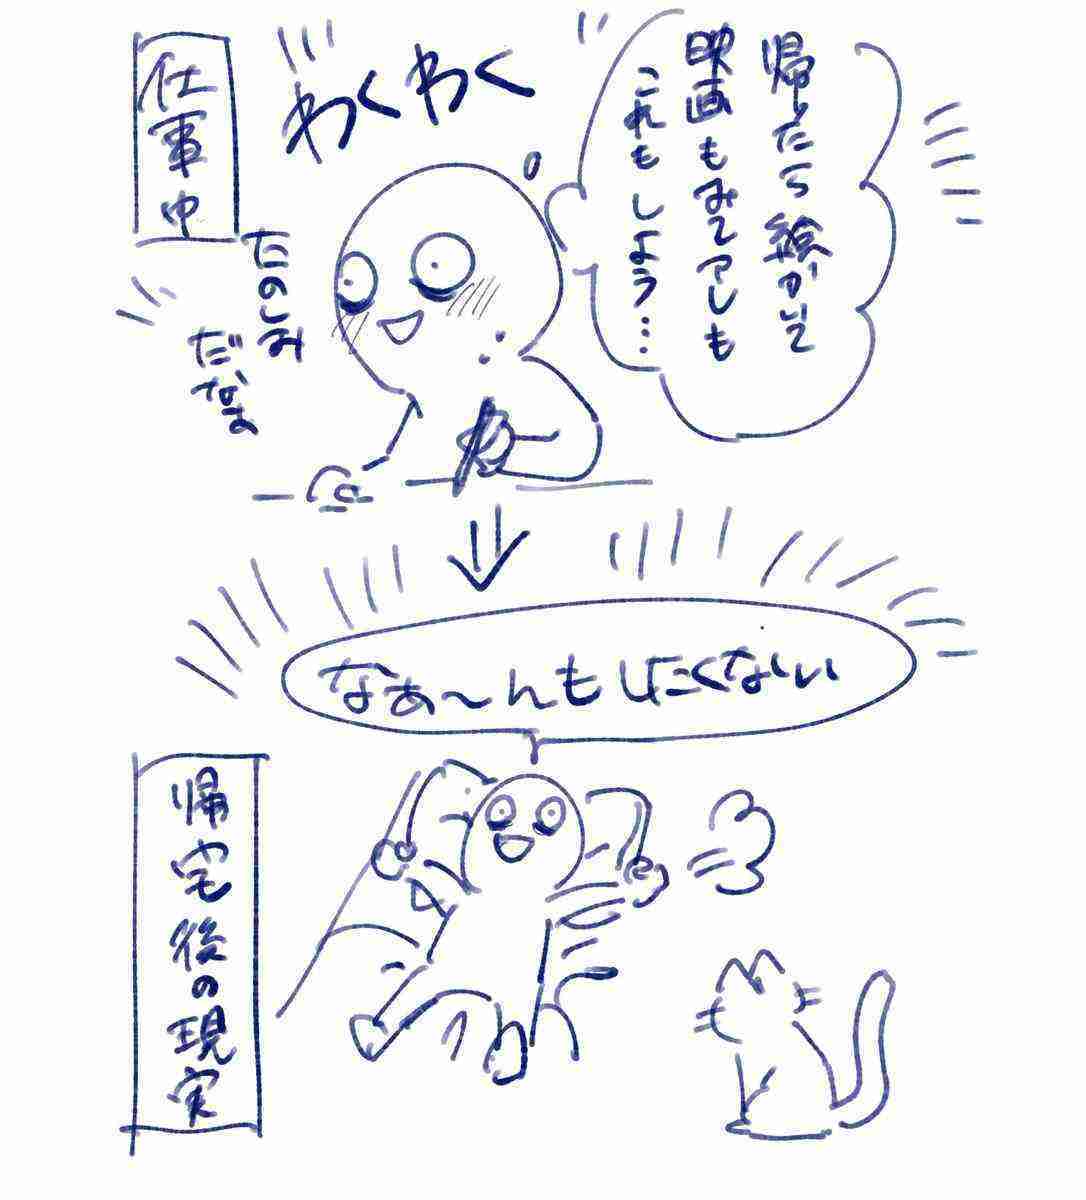 仕事中
わくわく
帰ったら絵かいて
映画もみてアレも
これもしよう…
たのしみ
だなぁ
なぁ～んもしたくない
帰宅後の現実